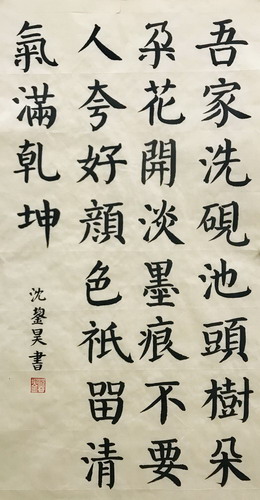 吾家洗硯池頭樹朵
朶花開淡墨痕不要
人夸好顔色祇留清
氣滿乾坤
沈鋆昊書